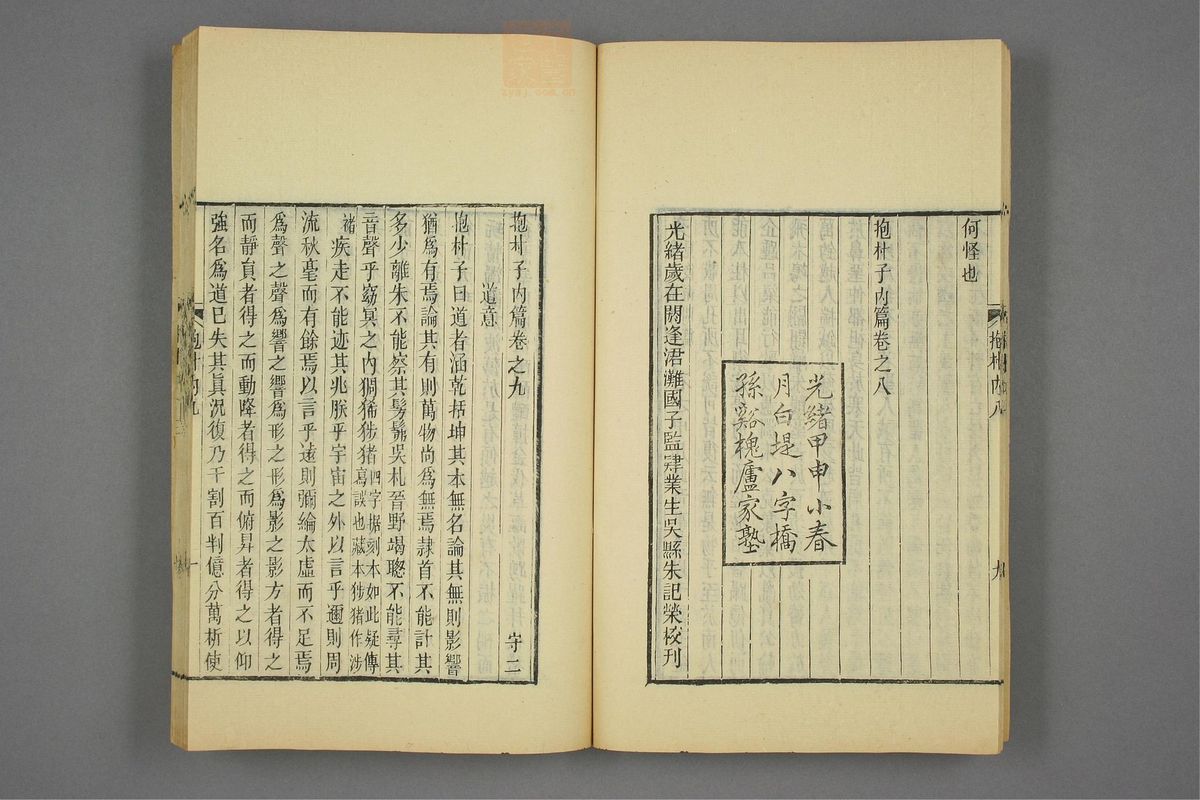 何怪也
抱朴子內篇卷之八
光緒甲申小春
月白堤八字橋
孫谿槐廬家塾
光緒歲在閼逢涒灘國子監肄業生吳縣朱記榮校刊
抱朴內八
九
抱朴子內篇卷之九
守二
道意
抱朴子曰道者涵乾括坤其本無名論其無則影響
猶爲有焉論其有則萬物尚爲無焉隸首不能計其
多少離朱不能察其髣髴吳札晉野竭聰不能尋其
音聲乎窈冥之內猵狶猪四字据刻本如此疑傳寫誤也藏本猪作涉
褚疾走不能迹其兆朕乎宇宙之外以言乎邇則周
流秋毫而有餘焉以言乎遠則彌綸太虛而不足焉
爲聲之聲爲響之響爲形之形爲影之影方者得之
而靜員者得之而動降者得之而俯昇者得之以仰
強名爲道已失其眞況復乃千割百判億分萬析使
抱朴內九